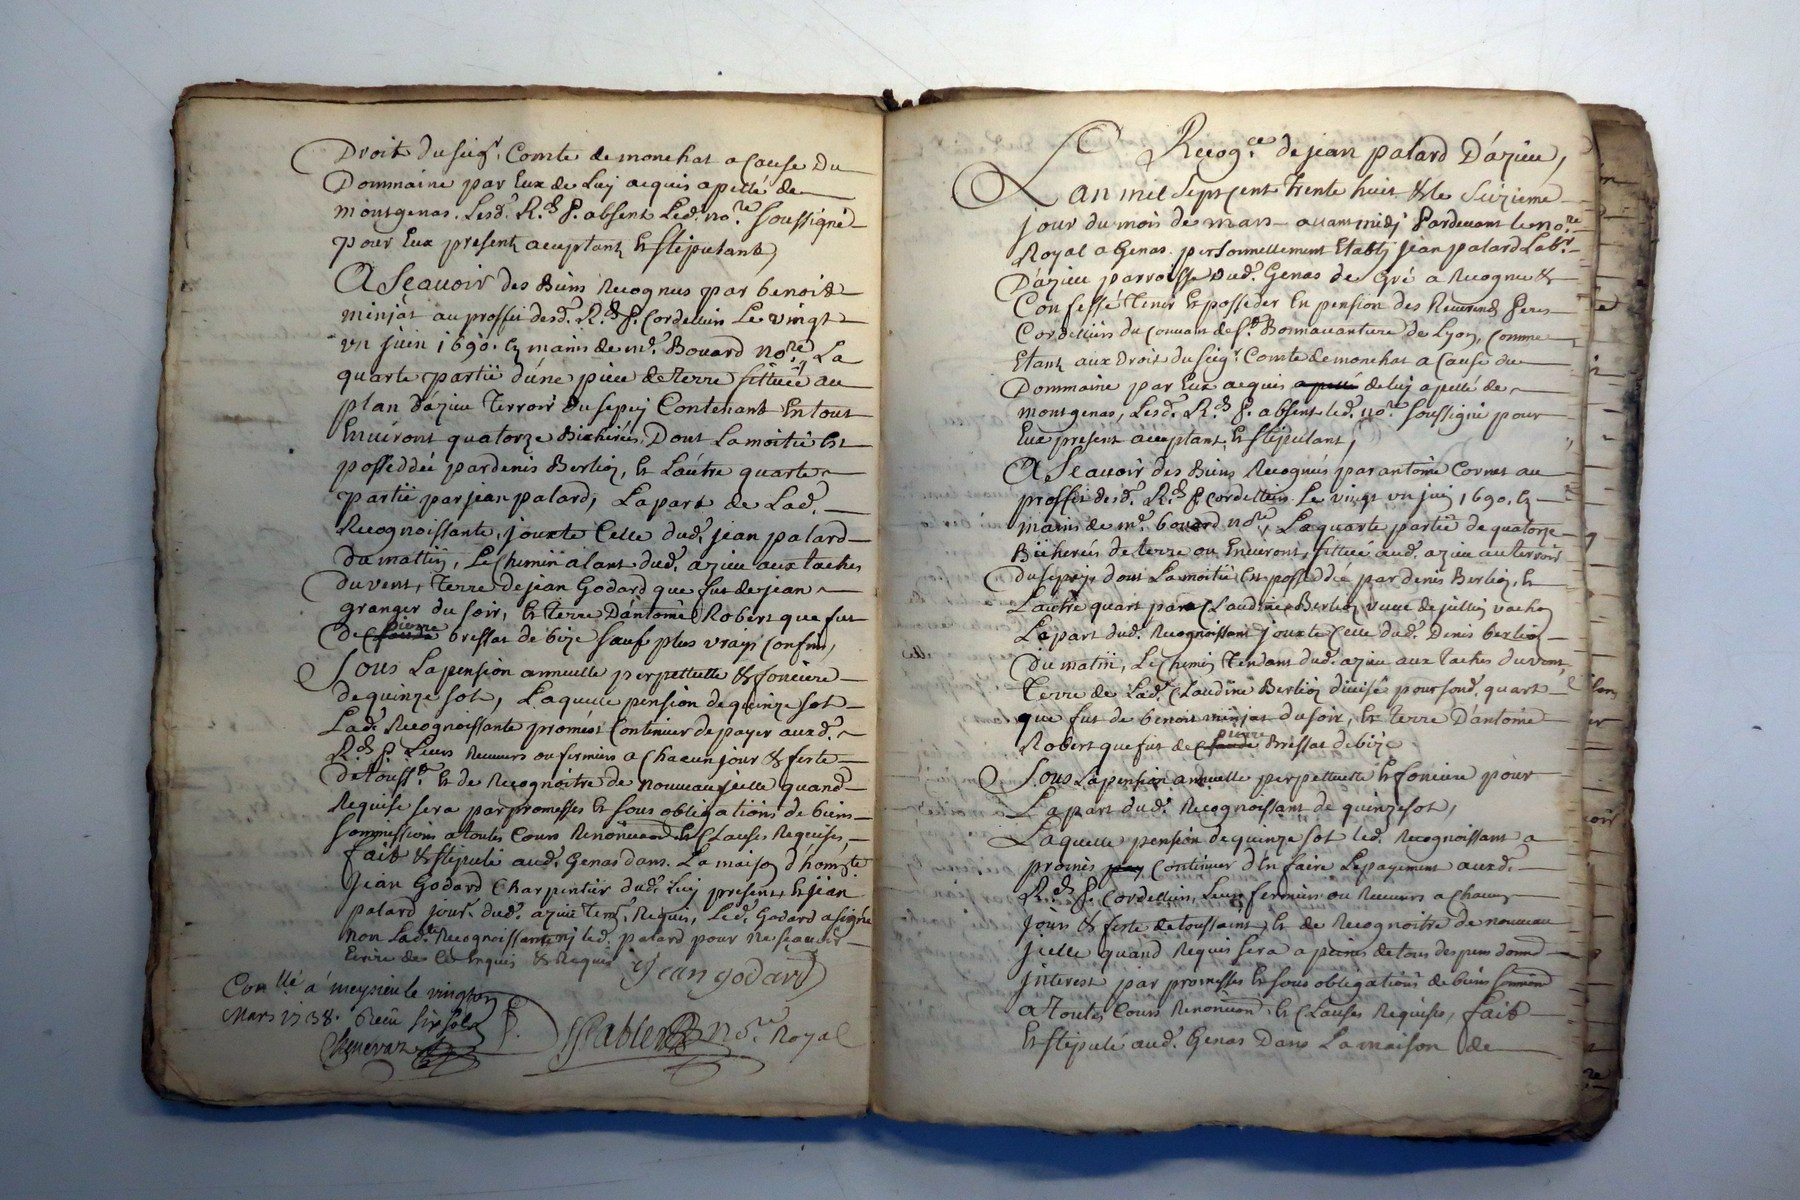 Droit du seigr. Comte de monchat a Cause Du
Dommaine par Eux de Luy acquis apellé de
montgenas. Lesd. Rds P. absent Led. nore. soussigné
pour Eux present acceptant Et stipulant,
A Sçauoir des Biens Recognus par benoist
minjat au proffit desd. Rds P. Cordelliers Le vingt
vn juin 1690. Ez mains de me. Bouard nore, La
quarte partië d'une piece de terre sittuée au
plan d'azieu Terroir du sepey Contenant En tout
Enuiront quatorze Bicherées, Dont La moitié Est
posseddée par denis Berlioz, Et L'autre quarte
partië par jean palard, La part de Lad.
Recognoissante, jouxte Celle dud. jean palard
du mattin, Le Chemin alant dud. azieu aux taches
du vent, Terre de jean Godard que fut de jean
granger du soir, Et terre D'antoine Robert que fut
de pierre bressat de bize sauf plus vrays Confins,
Sous La pension annuelle perpettuelle & fonciere
de quinze sol, Laquelle pension de quinze sol
Lad. Recognoissante promet Continuer de payer auxd.
Rds P. Leurs Receueurs ou fermiers a Chacun jour & feste
de Toussts. Et de Recognoitre de nouveau jcelle quand
Requise sera par promesses Et sous obligations de biens
sommissions a toutes Cours Renonciaons Et Clauses Requises,
fait & stipulé aud. Genas dans La maison d'homte.
Jean Godard Charpentier dud. Luy present, Et jean
palard jour. dud. azieu tems. Requis, Led. Godard a signé
non Lad. Recognoissante nj led. palard pour ne scauoir
Ecrire de Ce Enquis & Requis Jean godard
Conllé á meysieu le vingt
Mars 1738. Receu six sols
Cheneuaz
Sablier nore. Royal
Recogce. de jean palard D'azieu,
L'an mil sept cent Trente huit & le seizieme
jour du mois de mars auant midj Pardeuant le nore.
Royal a Genas personnellement Etablj jean palard Labr.
D'azieu parroisse dud. Genas de Gré a Recognu &
Confessé Tenir Et posseder En pension des Reuerends Peres
Cordelliers du Couuant de St. Bonnauanture de Lyon, Comme
Etant aux Droit du seigr. Comte de monchat a Cause du
Dommaine par Eux acquis apellé de luy apellé de
montgenas, Lesd. Rds P. absent led. nore. soussigné pour
Eux present acceptant Et stipulant,
A Sçauoir des Biens Recognus par antoine Cornet au
proffit desd. Rds P. Cordelliers Le vingt vn juin 1690. Ez
mains de me. bouard nore, La quarte partië de quatorze
Bicherées de terre ou Enuiront, sittuée aud. azieu au terroir
du sepeys dont La moitié Est posseddée par denis Berlioz, Et
L'autre quart par Claudine Berlioz veuue de jullin vachoz
La part dud. Recognoissant jouxte Celle dud. Denis berlioz
Du matin, Le Chemin Tendant dud. azieu aux Taches du vent,
Terre de Lad. Claudine Berlioz diuisée pour son d. quart
que fut de benoit minjat du soir, Et terre D'antoine
Robert que fut de pierre Bressat de bize
Sous La pension annuelle perpettuelle Et fonciere pour
La part dud. Recognoissant de quinze sol,
Laquelle pension de quinze sol led. Recognoissant a
promis pay Continuer d'En faire Le payement auxd.
Rds P. Cordelliers, Leurs fermiers ou Receueurs a Chacun
jours & feste de toussaint, Et de Recognoitre de nouueau
jcelle quand Requis sera a peines de tous despens dommd
interest par promesses Et sous obligations de biens sommiond
a toutes Cours Renonciaond Et Clauses Requises, fait
Et stipulé aud. Genas Dans La maison de